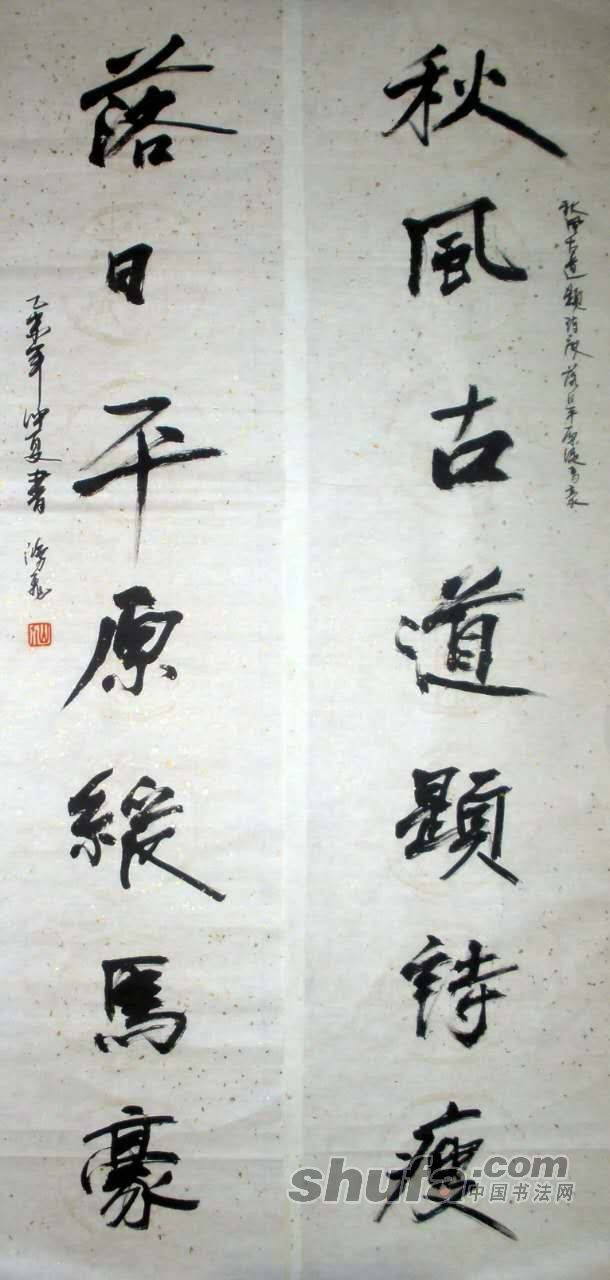 秋風古道題詩瘦
秋風古道題詩瘦落日平原緩馬豪
落日平原緩馬豪
乙未年仲夏書
shufa.com
中国书法网